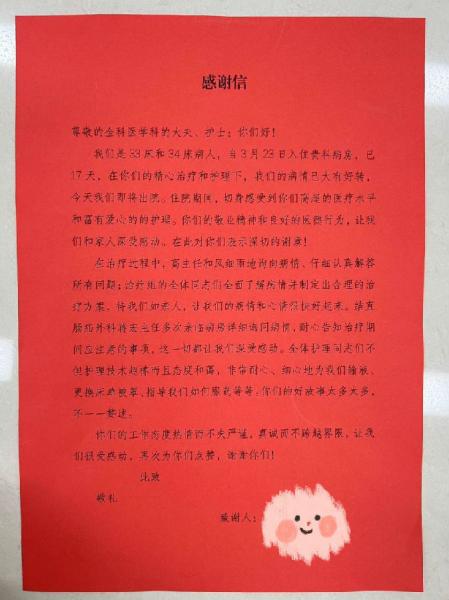 感谢信
尊敬的全科医学科的大夫、护士：你们好！
我们是33床和34床病人，自3月23日入住贵科病房，已
17天，在你们的精心治疗和护理下，我们的病情已大有好转，
今天我们即将出院。住院期间，切身感受到你们高超的医疗水平
和富有爱心的的护理。你们的敬业精神和良好的医德行为，让我
们和家人深受感动。在此对你们表示深切的谢意！
在治疗过程中，高主任和风细雨地询问病情、仔细认真解答
所有问题；治疗组的全体同志们全面了解病情并制定出合理的治
疗方案、待我们如亲人，让我们的病情和心情很快好起来。结直
肠肛外科韩宏主任多次亲临病房详细询问病情，耐心告知治疗期
间应注意的事项，这一切都让我们深受感动。全体护理同志们不
但护理技术超棒而且态度和蔼，非常耐心、细心地为我们输液、
更换床单被罩、指导我们如何服药等等，你们的好故事太多太多，
不一一赘述。
你们的工作态度热情而不失严谨，真诚而不跨越界限，让我
们很受感动，再次为你们点赞，谢谢你们！
此致
敬礼
致谢人：